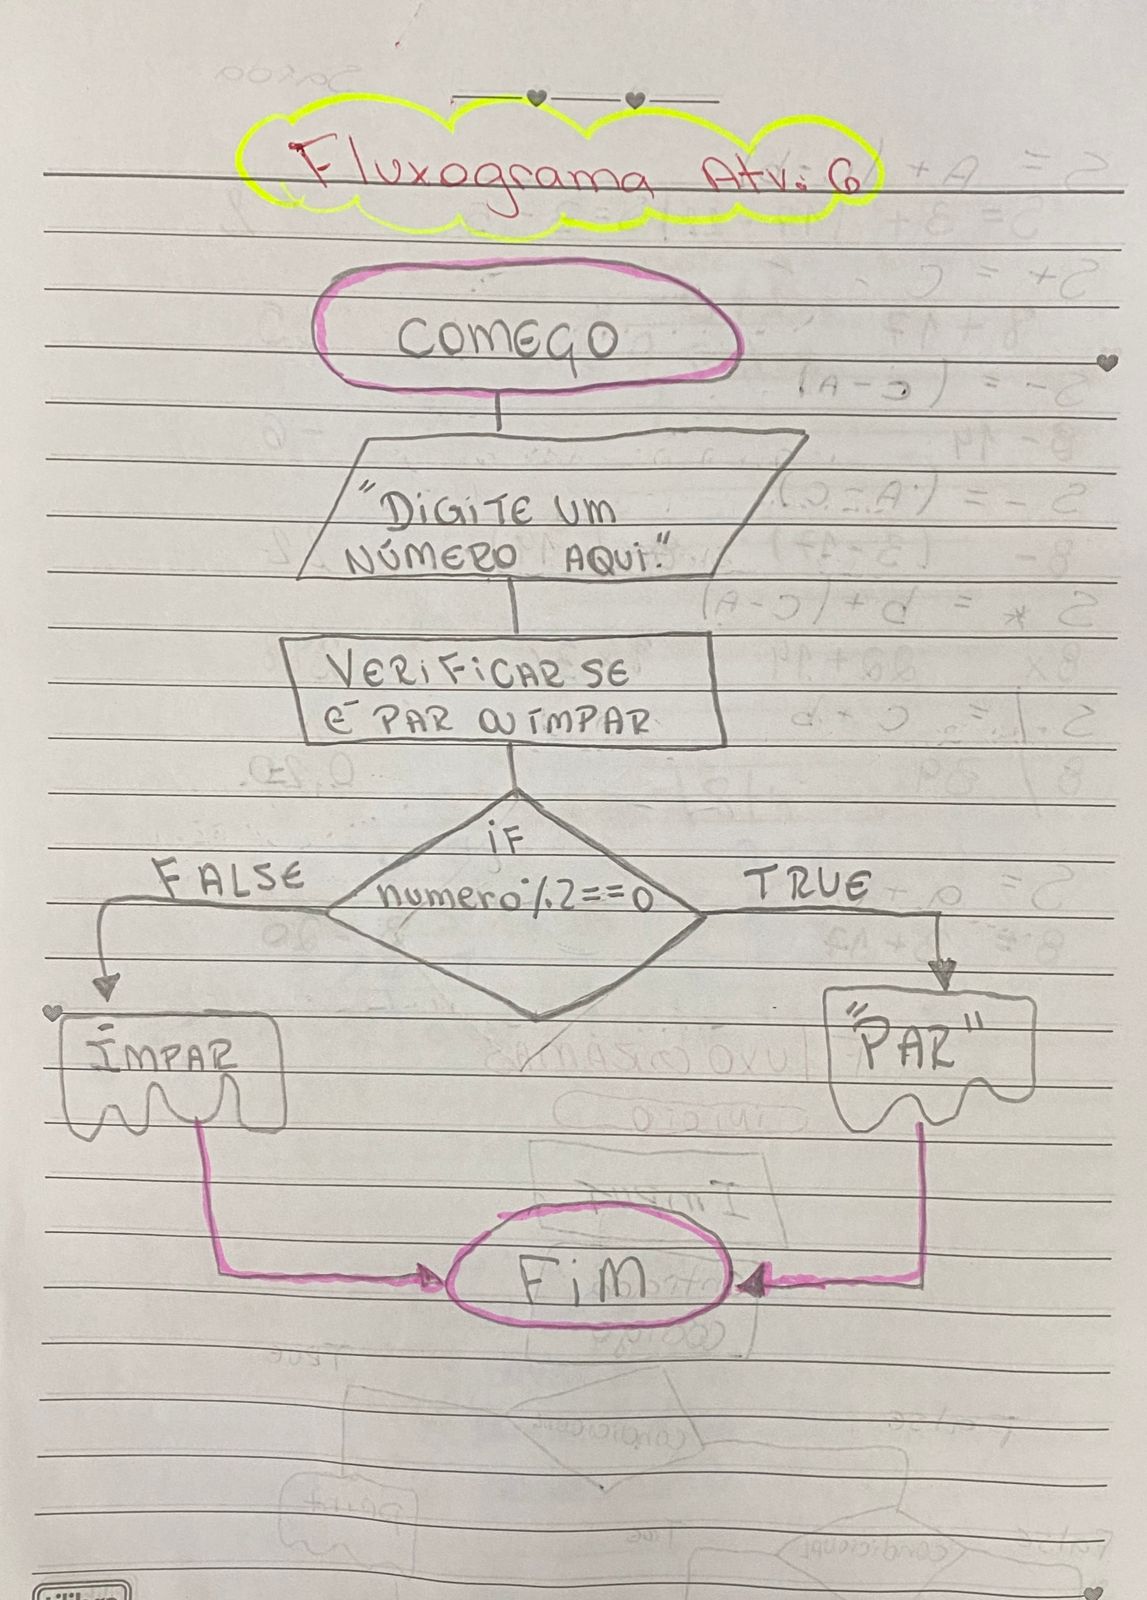 Fluxograma Atv. 6
COMEÇO
"DIGITE UM
NÚMERO AQUI:"
VERIFICAR SE
É PAR OU ÍMPAR
IF
numero%2==0
FALSE
TRUE
ÍMPAR
"PAR"
FIM